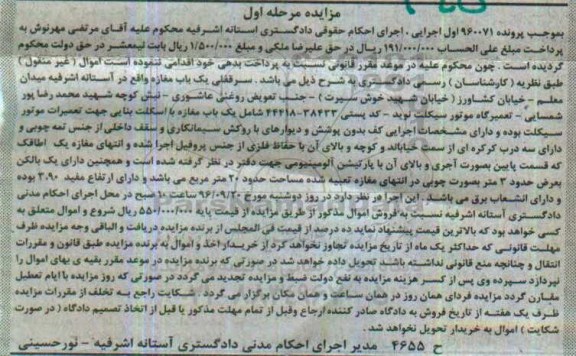 مزایده مرحله اول
بموجب پرونده ۹۶۰۰۷۱ اول اجرایی ، اجرای احکام حقوقی دادگستری آستانه اشرفیه محکوم علیه آقای مرتضی مهرنوش به
پرداخت مبلغ علی الحساب ۱۹۱/۰۰۰/۰۰۰ ریال در حق علیرضا ملکی و مبلغ ۱/۵۰۰/۰۰۰ ریال بابت نیمعشر در حق دولت محکوم
گردیده است . چون محکوم علیه در موعد مقرر قانونی نسبت به پرداخت بدهی خود اقدامی ننموده است اموال ( غیر منقول )
طبق نظریه ( کارشناسان ) رسمی دادگستری به شرح ذیل می باشد . سرقفلی یک باب مغازه واقع در آستانه اشرفیه میدان
معلم - خیابان کشاورز ( خیابان شهید خوش سیرت ) - جنب تعویض روغنی عاشوری - نبش کوچه شهید محمد رضا پور
شمسایی - تعمیرگاه موتور سیکلت نوید - کد پستی ۳۸۴۳۳-۴۴۴۱۸ شامل یک باب مغازه با اسکلت بنایی جهت تعمیرات موتور
سیکلت بوده و دارای مشخصات اجرایی کف بدون پوشش و دیوارهای با روکش سیمانکاری و سقف داخلی از جنس تمه چوبی و
دارای سه درب کرکره ای از سمت خیابالند و کوچه و بالای آن با حفاظ فلزی از جنس پروفیل اجرا شده و انتهای مغازه یک اطاقک
که قسمت پایین بصورت آجری و بالای آن با پارتیشن آلومینیومی جهت دفتر در نظر گرفته شده است و همچنین دارای یک بالکن
بعرض حدود ۳ متر بصورت چوبی در انتهای مغازه تعبیه شده مساحت حدود ۲۰ متر مربع می باشد و دارای ارتفاع مفید ۳.۹۰ بوده
و دارای انشعاب برق می باشند . این اجرا در نظر دارد در روز دوشنبه مورخ ۹۶/۰۹/۲۰ ساعت ۱۰ صبح در محل اجرای احکام مدنی
دادگستری آستانه اشرفیه نسبت به فروش اموال مذکور از طریق مزایده از قیمت پایه ۵۵۰/۰۰۰/۰۰۰ ریال شروع و اموال متعلق به
کسی خواهد بود که بالاترین قیمت پیشنهاد نماید ده درصد از قیمت فی المجلس از برنده مزایده دریافت و الباقی وجه مزایده ظرف
مهلت قانونی که حداکثر یک ماه از تاریخ مزایده تجاوز نخواهد کرد از خریدار اخذ و اموال به برنده مزایده طبق قانون و مقررات
انتقال و چنانچه منع قانونی نداشته باشد تحویل داده خواهد شد در صورتی که برنده مزایده در موعد مقرر بقیه ی بهای اموال را
نپردازد سپرده وی پس از کسر هزینه مزایده به نفع دولت ضبط و مزایده تجدید می گردد در صورتی که روز مزایده با ایام تعطیل
مقارن گردد مزایده فردای همان روز در همان ساعت و همان مکان برگزار می گردد . شکایت راجع به تخلف از مقررات مزایده
ظرف یک هفته از تاریخ فروش به دادگاه صادر کننده ارجاع وقبل از تمام مهلت مذکور یا قبل از اتخاذ تصمیم دادگاه ( در صورت
شکایت ) اموال به خریدار تحویل نخواهد شد .
ح ۴۶۵۵ مدیر اجرای احکام مدنی دادگستری آستانه اشرفیه - نورحسینی